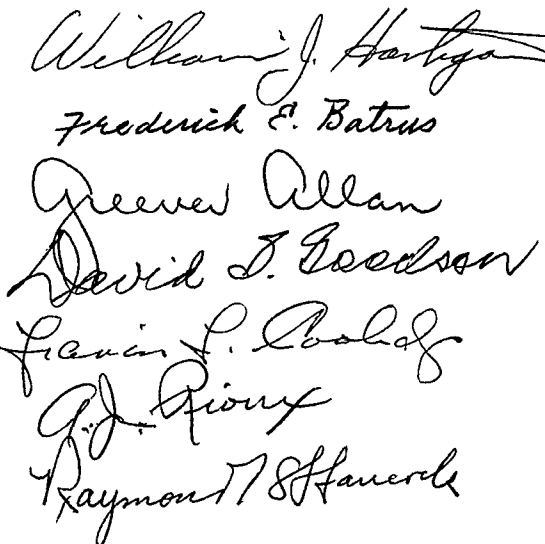 William J. Hartigan
Frederick E. Batrus
Greever Allan
David S. Goodson
Francis L. Coolidge
A. J. Rioux
Raymond